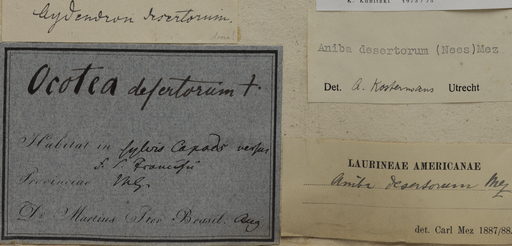 Aydendron desertorum.
Ocotea desertorum †.
Habitat in sylvis Capoës versus
S. Francisci
Provinciae M.G.
Dr. Martius Iter Brasil. Aug
K. Kubitzki 1975/76
Aniba desertorum (Nees)Mez
Det. A. Kostermans Utrecht
LAURINEAE AMERICANAE
Aniba desertorum Mez
det. Carl Mez 1887/88.